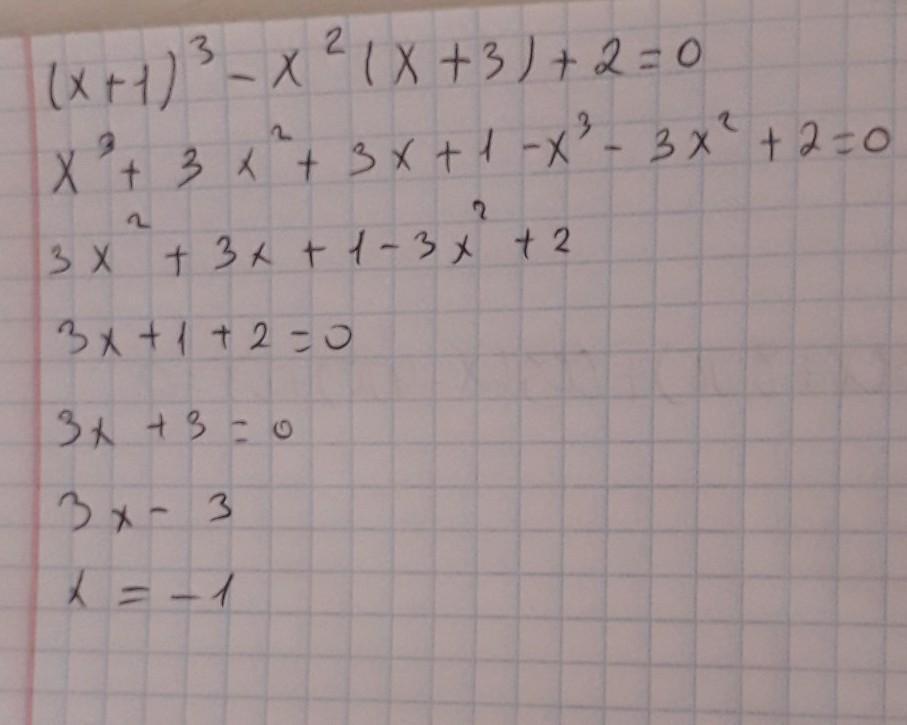 (x+1)³ - x²(x+3)+2=0
x³ + 3x² + 3x+1 -x³ - 3x² +2=0
3x² + 3x + 1 - 3x² + 2
3x+1+2=0
3x +3 = 0
3x - 3
x = -1